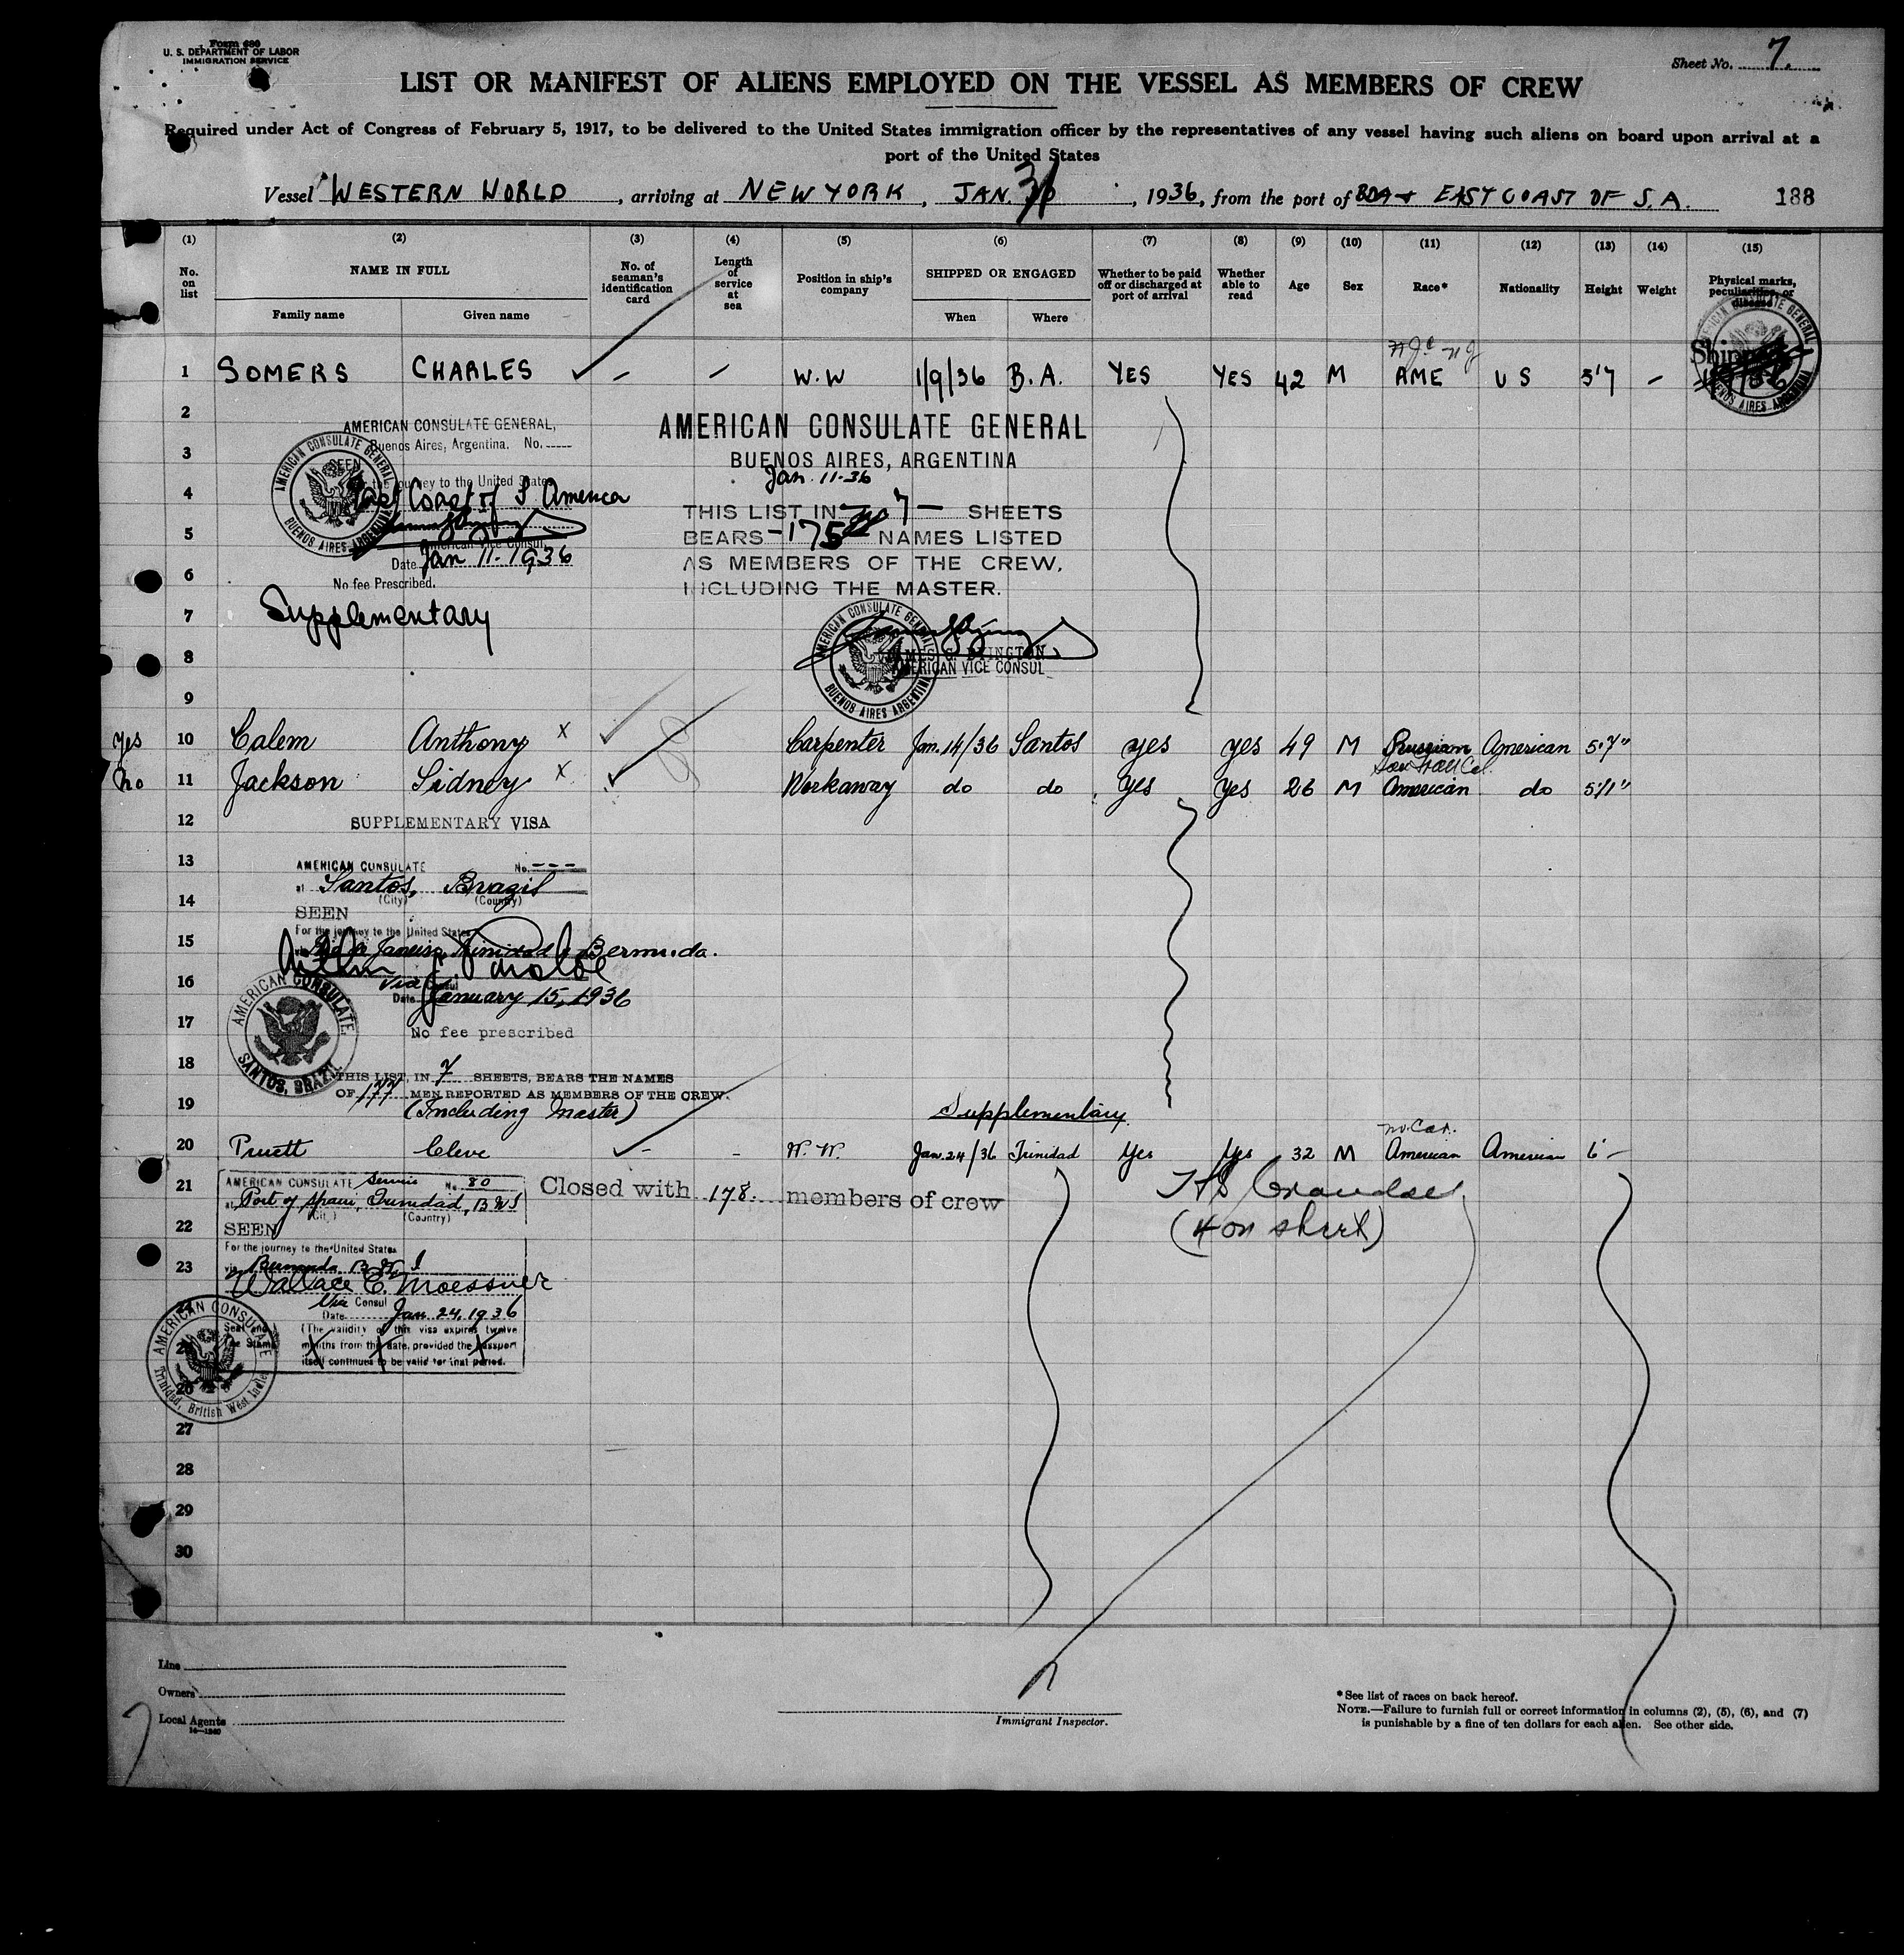 Form 680
U. S. DEPARTMENT OF LABOR
IMMIGRATION SERVICE
Sheet No. 7.
LIST OR MANIFEST OF ALIENS EMPLOYED ON THE VESSEL AS MEMBERS OF CREW
Required under Act of Congress of February 5, 1917, to be delivered to the United States immigration officer by the representatives of any vessel having such aliens on board upon arrival at a
port of the United States
Vessel WESTERN WORLD, arriving at NEW YORK, JAN. 31, 1936, from the port of BDA + EAST COAST OF S.A. 188
(1) (2) (3) (4) (5) (6) (7) (8) (9) (10) (11) (12) (13) (14) (15)
No. on list NAME IN FULL Family name Given name No. of seaman's identification card Length of service at sea Position in ship's company SHIPPED OR ENGAGED When Where Whether to be paid off or discharged at port of arrival Whether able to read Age Sex Race* Nationality Height Weight Physical marks, peculiarities, or disease
1 SOMERS CHARLES – – W.W 1/9/36 B.A. YES YES 42 M AME U S 5'7 –
2
AMERICAN CONSULATE GENERAL,
Buenos Aires, Argentina. No.
SEEN
the journey to the United States
East Coast of S America
American Vice Consul
Date Jan 11-1936
No fee Prescribed.
Supplementary
AMERICAN CONSULATE GENERAL
BUENOS AIRES ARGENTINA
AMERICAN CONSULATE GENERAL
BUENOS AIRES, ARGENTINA
Jan. 11-36
THIS LIST IN 7 – SHEETS
BEARS -175 NAMES LISTED
AS MEMBERS OF THE CREW,
INCLUDING THE MASTER.
AMERICAN VICE CONSUL
AMERICAN CONSULATE GENERAL
BUENOS AIRES ARGENTINA
3
4
5
6
7
8
9
Yes 10 Calem Anthony x Carpenter Jan. 14/36 Santos yes yes 49 M Russian American 5'7"
No 11 Jackson Sidney x Workaway do do Yes Yes 26 M American do 5'11"
12 SUPPLEMENTARY VISA
13
AMERICAN CONSULATE No. ---
at Santos, Brazil
(City) (Country)
14
SEEN
For the journey to the United States
15
via Rio de Janeiro, Trinidad & Bermuda.
16
Date January 15, 1936
17
No fee prescribed
AMERICAN CONSULATE
SANTOS, BRAZIL
18
THIS LIST, IN 7 SHEETS, BEARS THE NAMES
OF 177 MEN REPORTED AS MEMBERS OF THE CREW.
19 (Including Master) Supplementary
20 Pruett Cleve – – W.W. Jan. 24/36 Trinidad Yes Yes 32 M American American 6' –
21
AMERICAN CONSULATE Service No. 80
at Port of Spain, Trinidad, BWI
(City) (Country)
Closed with 178 members of crew
(4 on sheet)
22 SEEN
For the journey to the United States
23
via Bermuda
Wallace E. Moessner
Vice Consul
Date Jan. 24, 1936
(The validity of this visa expires twelve
months from this date, provided the passport
itself continues to be valid for that period.
AMERICAN CONSULATE
Trinidad, British West Indies
27
28
29
30
Line
Owners
Local Agents
Immigrant Inspector.
*See list of races on back hereof.
NOTE.—Failure to furnish full or correct information in columns (2), (5), (6), and (7)
is punishable by a fine of ten dollars for each alien. See other side.